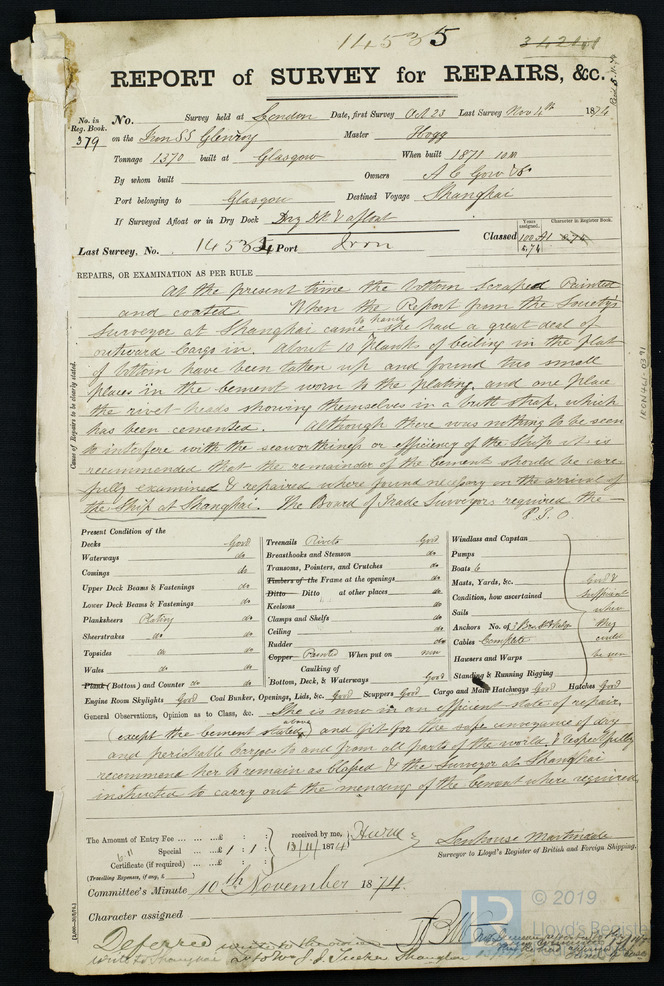 14535
34211
REPORT of SURVEY for REPAIRS, &c.
No. in Reg. Book. 379
No. Survey held at London Date, first Survey Oct 23 Last Survey Nov 4th 1874
on the Iron SS Glenroy Master Hogg
Tonnage 1370 built at Glasgow When built 1871 10m
By whom built Owners A C Gow & Co.
Port belonging to Glasgow Destined Voyage Shanghai
If Surveyed Afloat or in Dry Dock Dry Dk & afloat
Years assigned. Character in Register Book.
Last Survey, No. Port Iron Classed 100 A1
5.74
REPAIRS, OR EXAMINATION AS PER RULE
At the present time the bottom scraped Painted
and coated. When the Report from the Society's
Surveyor at Shanghai came to hand she had a great deal of
outward Cargo in. About 10 planks of ceiling in the flat
of bottom have been taken up and found two small
places in the cement worn to the plating, and one place
the rivet heads showing themselves in a butt strap, which
has been cemented. Although there was nothing to be seen
to interfere with the seaworthiness or efficiency of the Ship it is
recommended that the remainder of the Cement should be care
fully examined & repaired where found necessary on the arrival of
the Ship at Shanghai. The Board of Trade Surveyors required the
P.T.O
Cause of Repairs to be clearly stated.
IRON461-0391
Present Condition of the
Decks Good
Waterways do
Comings do
Upper Deck Beams & Fastenings do
Lower Deck Beams & Fastenings do
Planksheers Plating do
Sheerstrakes do do
Topsides do do
Wales do do
Plank (Bottom) and Counter do do
Treenails Rivets Good
Breasthooks and Stemson do
Transoms, Pointers, and Crutches do
Timbers of the Frame at the openings do
Ditto Ditto at other places do
Keelsons do
Clamps and Shelfs do
Ceiling do
Rudder do
Copper Painted When put on now
Caulking of
Bottom, Deck, & Waterways Good
Windlass and Capstan
Pumps
Boats 6
Masts, Yards, &c.
Condition, how ascertained
Sails
Anchors No. of 3 Bow
Cables Complete
Hawsers and Warps
Standing & Running Rigging
Good &
sufficient
where
they
could
be seen
Engine Room Skylights Good Coal Bunker, Openings, Lids, &c. Good Scuppers Good Cargo and Main Hatchways Good Hatches Good
General Observations, Opinion as to Class, &c. She is now in an efficient state of repair,
(except the cement stated above) and fit for the safe conveyance of dry
and perishable Cargoes to and from all parts of the world, & respectfully
recommend her to remain as Classed & the Surveyor at Shanghai
instructed to carry out the mending of the Cement where required
The Amount of Entry Fee £ : :
Special £ 1 : 1 :
Certificate (if required) £ : :
(Travelling Expenses, if any, £ )
received by me,
13/11/1874
Senhouse Martindale
Surveyor to Lloyd's Register of British and Foreign Shipping.
Committee's Minute 10th November 1874.
Character assigned
Deferred
write to Shanghai
© 2019
Lloyd's Register